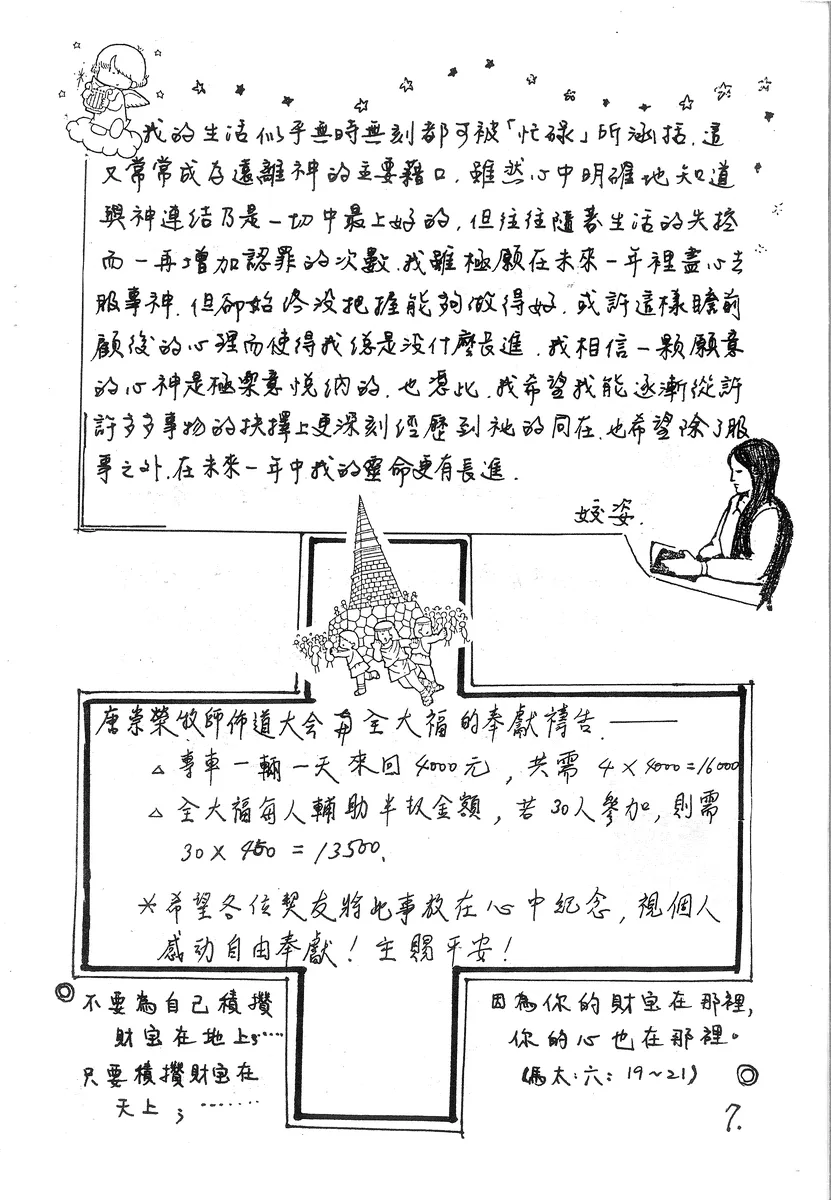 我的生活似乎無時無刻都可被「忙碌」所涵括.這
又常常成為遠離神的主要藉口.雖然心中明確地知道
與神連結乃是一切中最上好的.但往往隨著生活的失控
而一再增加認罪的次數.我雖極願在未來一年裡盡心去
服事神.但卻始終沒把握能夠做得好.或許這樣瞻前
顧後的心理而使得我總是沒什麼長進.我相信一顆願意
的心神是極樂意悅納的.也憑此.我希望我能逐漸從許
許多多事物的抉擇上更深刻經歷到祂的同在.也希望除了服
事之外.在未來一年中我的靈命更有長進.
姣姿.
唐崇榮牧師佈道大会 與 全大福的奉獻禱告.——
△ 專車一輛一天來回4000元，共需 4×4000=16000
△ 全大福每人輔助半教金額，若30人參加，則需
30×450=13500.
*希望各位契友將此事放在心中紀念，視個人
感动自由奉獻！主賜平安！
◎不要為自己積攢
財宝在地上;……
只要積攢財宝在
天上；……
因為你的財宝在那裡，
你的心也在那裡。
(馬太:六:19~21) ◎
7.